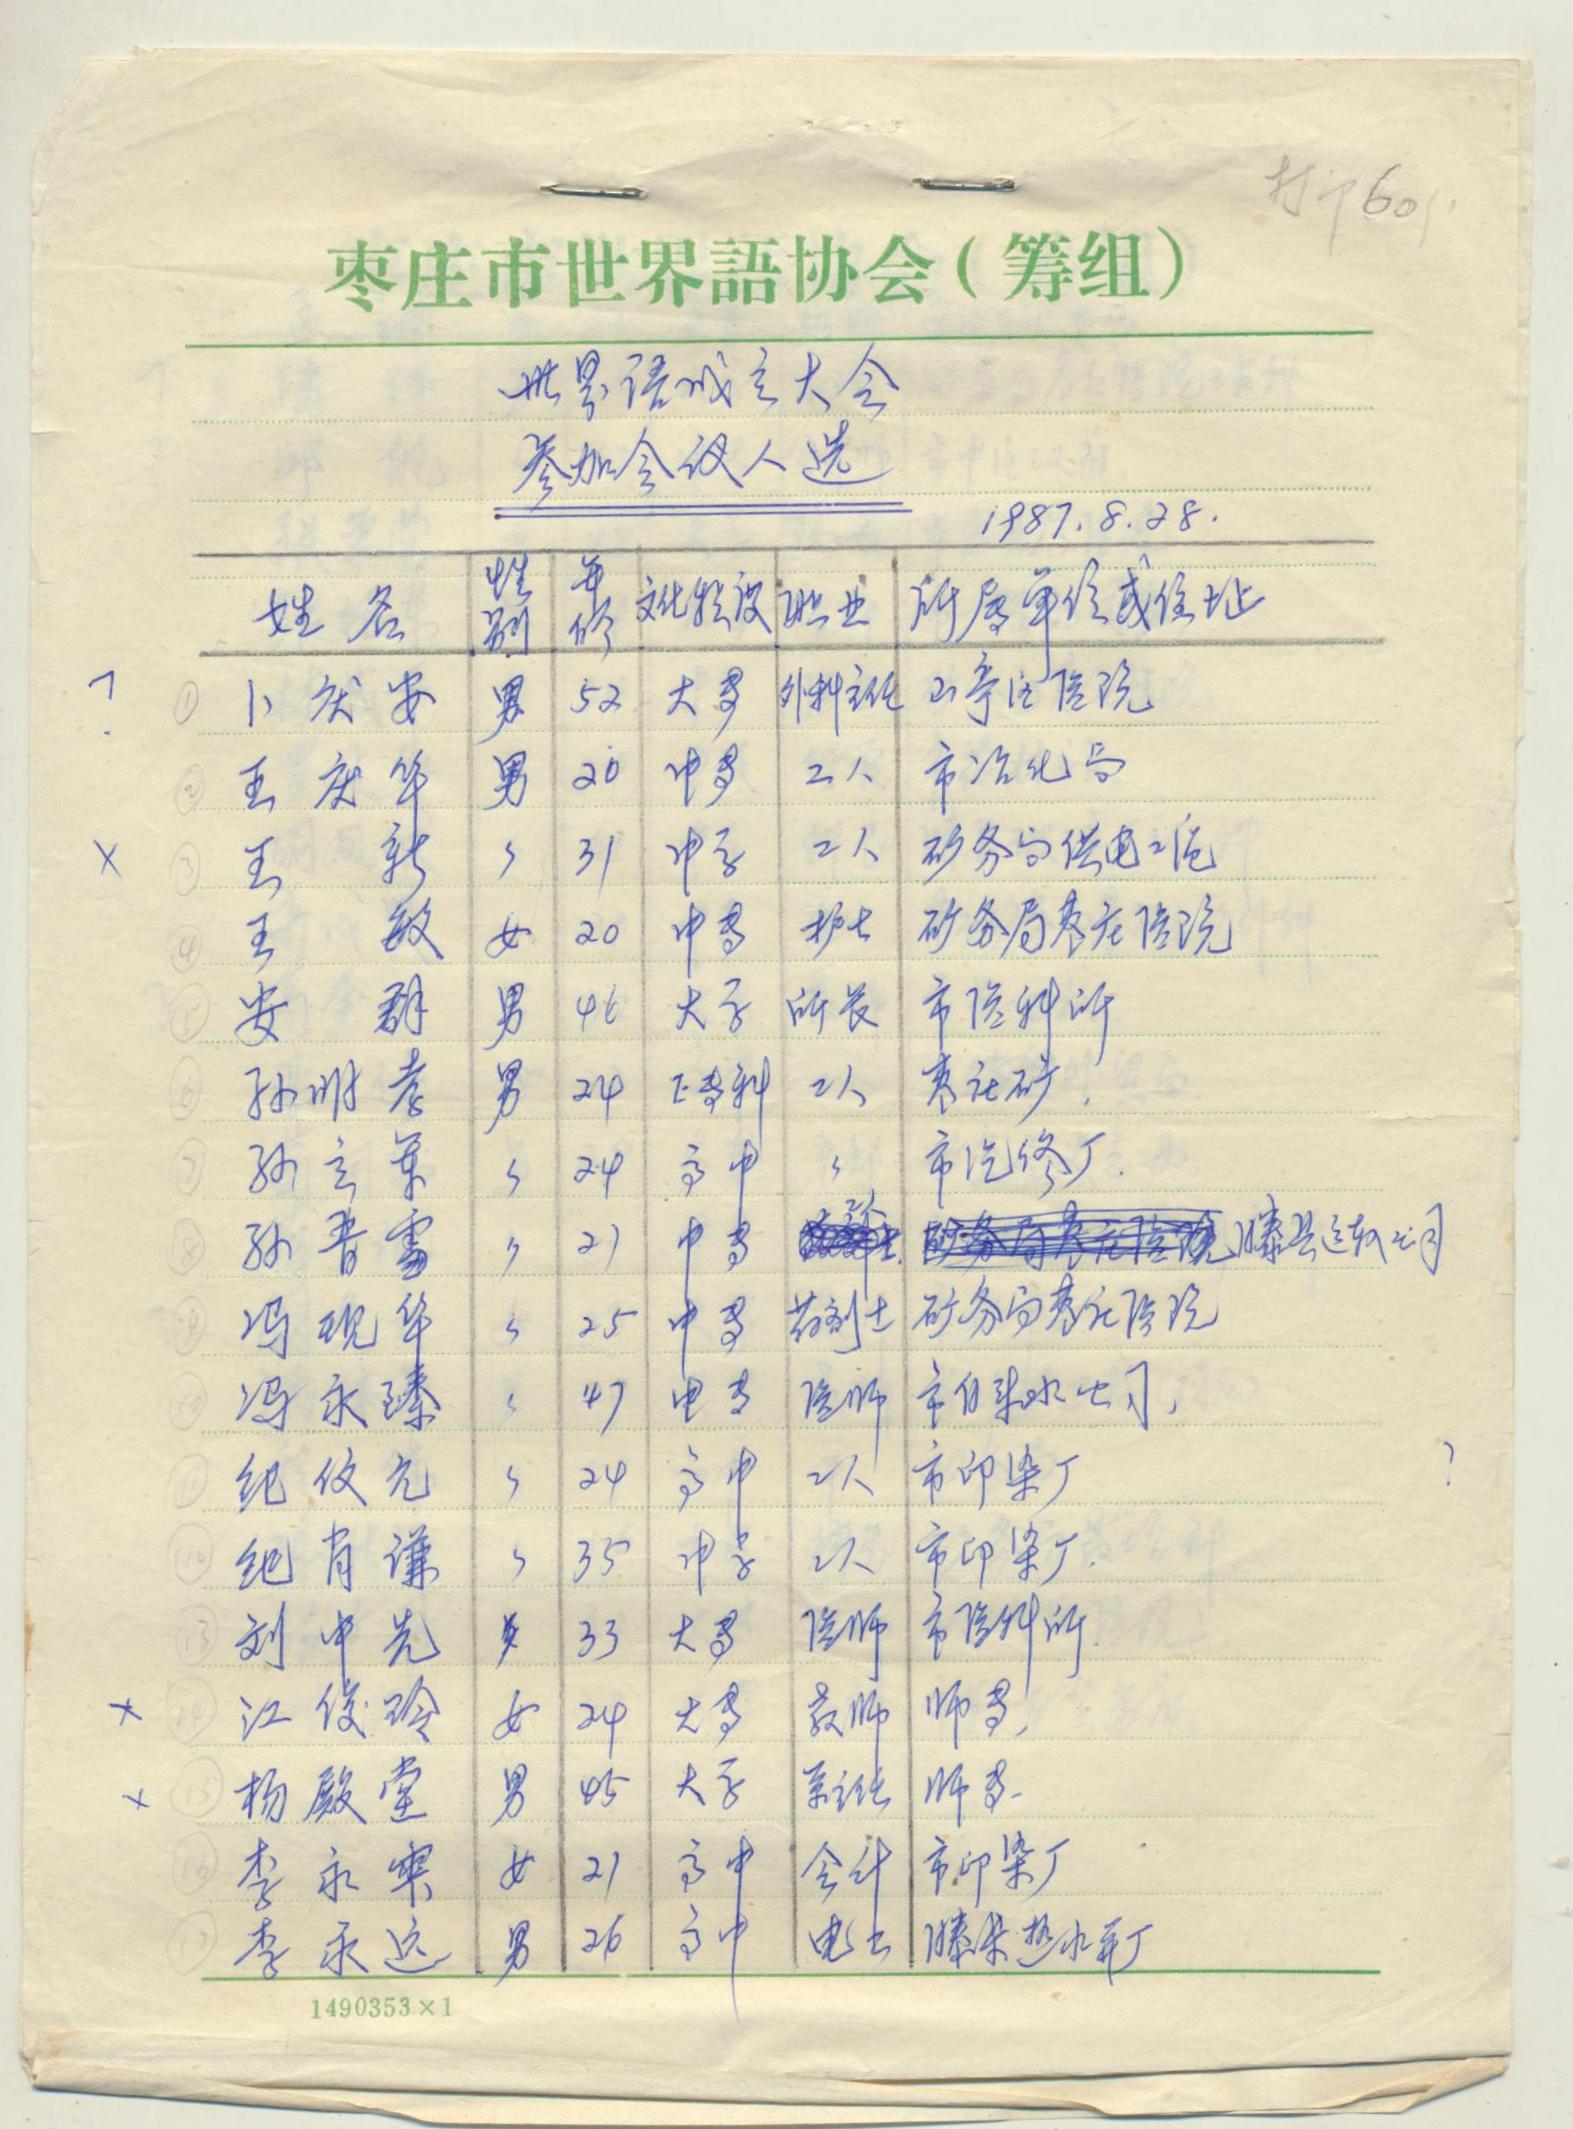 打印60份
枣庄市世界語协会(筹组)
世界语成立大会
参加会议人选
1987.8.28.
姓名 性别 年龄 文化程度 职业 所属单位或住址
? ① 卜庆安 男 52 大专 外科主任 山亭区医院
② 王庆华 男 20 中专 工人 市冶化局
× ③ 王新 〃 31 中学 工人 矿务局供电工区
④ 王敏 女 20 中专 护士 矿务局枣庄医院
⑤ 安群 男 46 大学 所长 市医科所
⑥ 孙明孝 男 24 专科 工人 枣庄矿.
⑦ 孙立 〃 24 高中 〃 市汽修厂.
⑧ 孙晋 〃 21 中专 矿务局枣庄医院 滕县运输公司
⑨ 冯现华 〃 25 中专 药剂士 矿务局枣庄医院
⑩ 冯永臻 〃 47 中专 医师 市自来水公司,
⑪ 纪仪元 〃 24 高中 工人 市印染厂 ?
⑫ 纪肖谦 〃 35 中学 工人 市印染厂.
⑬ 刘中先 男 33 大专 医师 市医科所.
× ⑭ 江俊玲 女 24 大专 教师 师专,
× ⑮ 杨殿堂 男 45 大学 系主任 师专.
⑯ 李永 女 21 高中 会计 市印染厂
⑰ 李永远 男 26 高中 电工 滕县热水瓶厂
1490353×1